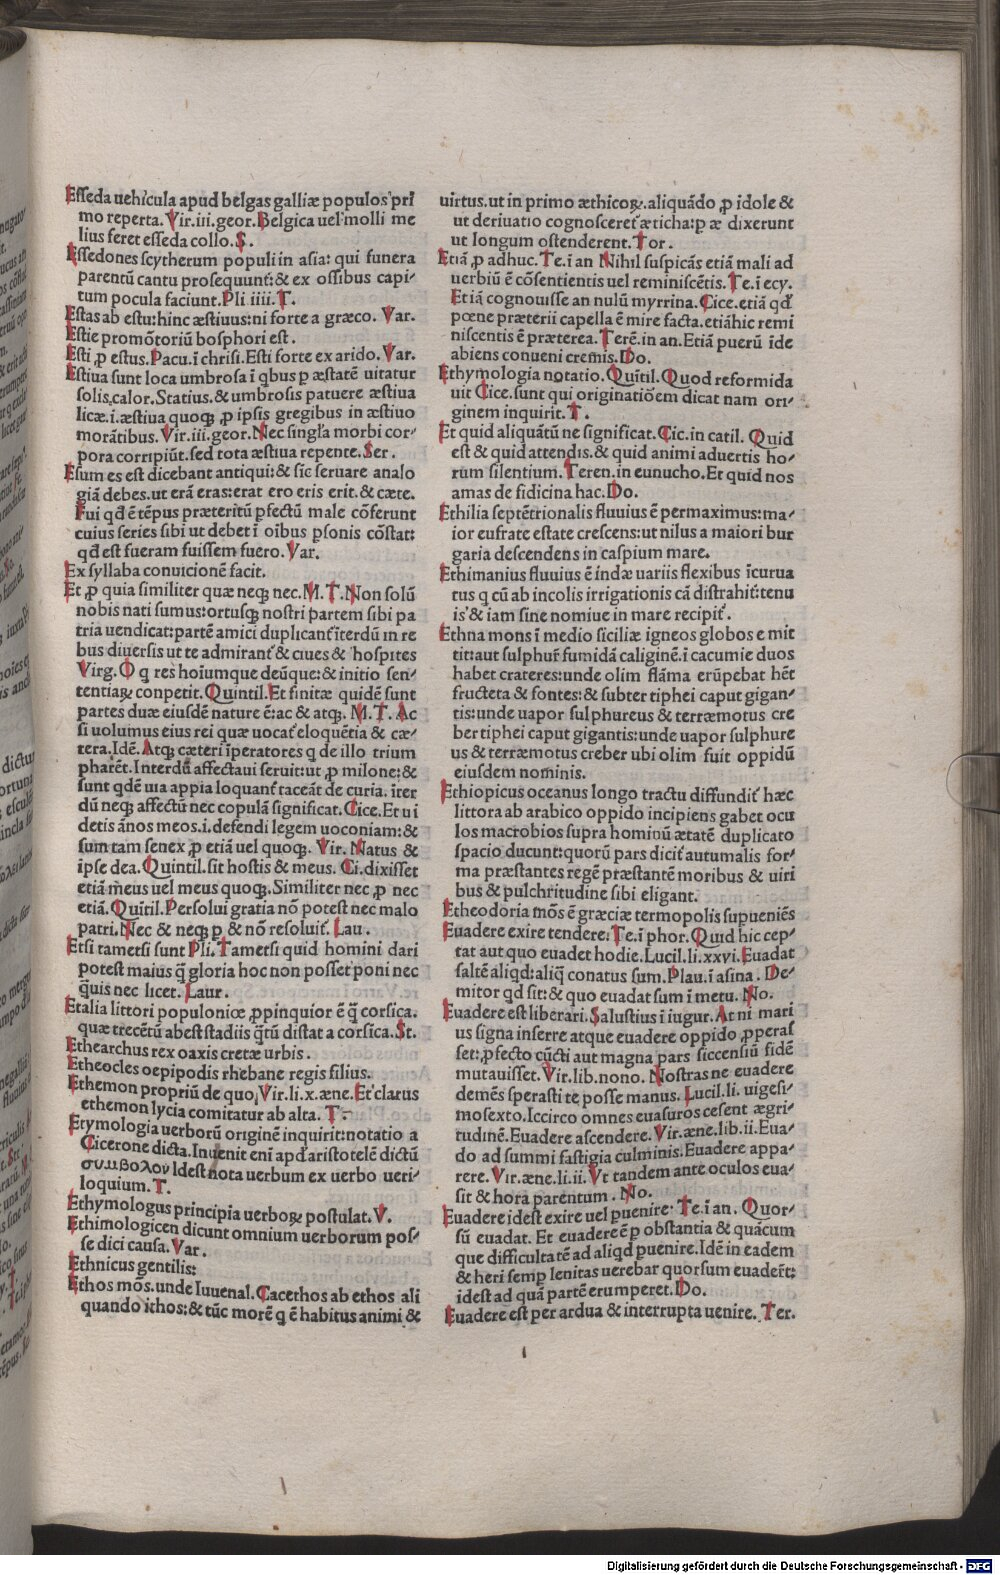 Esseda uehicula apud belgas galliæ populos pri
mo reperta. Vir.iii.geor.Belgica uel molli me
lius feret esseda collo.S.
Essedones scytherum populi in asia: qui funera
parentū cantu prosequunt̄:& ex ossibus capi-
tum pocula faciunt.Pli iiii.T.
Estas ab estu:hinc æstiuus:ni forte a græco. Var.
Estie promōtoriū bosphori est.
Esti ꝓ estus.Pacu.ī chrisi.Esti forte ex arido. Var.
Estiua sunt loca umbrosa ī qbus p æstatē uitatur
solis calor. Statius.& umbrosis patuere æstiua
licæ.i.æstiua quoqꝫ ꝓ ipsis gregibus in æstiuo
morātibus. Vir.iii.geor.Nec singl'a morbi cor-
pora corripiūt.sed tota æstiua repente. Ser.
Esum es est dicebant antiqui:& sic seruare analo
giā debes.ut erā eras:erat ero eris erit.& cæte.
Fui qd̄ ē tēpus præteritū pfectū male cōferunt
cuius series sibi ut debet ī oībus psonis cōstat:
qd̄ est fueram fuissem fuero. Var.
Ex syllaba conuicionē facit.
Et ꝓ quia similiter quæ neqꝫ nec.M.T.Non solū
nobis nati sumus:ortusqꝫ nostri partem sibi pa
tria uendicat:partē amici duplicant̄ īterdū in re
bus diuersis ut te admirant̄ & ciues & hospites
Virg. O q res hoīumque deūque:& initio sen-
tentiaꝝ conpetit. Quintil. Et finitæ quidē sunt
partes duæ eiusdē nature ē:ac & atqꝫ. M.T. Ac
si uolumus eius rei quæ uocat̄ eloquētia & cæ-
tera. Idē. Atqꝫ cæteri īperatores q de illo trium
pharēt.Interdū affectaui seruit:ut ꝓ milone:&
sunt qdē uia appia loquant̄ taceāt de curia. īter
dū neqꝫ affectū nec copulā significat. Cice. Et ui
detis ānos meos.i.defendi legem uoconiam:&
sum tam senex ꝓ etiā uel quoqꝫ. Vir. Natus &
ipse dea. Quintil.sit hostis & meus. Ci.dixisset
etiā meus uel meus quoqꝫ.Similiter nec ꝓ nec
etiā. Quītil.Persolui gratia nō potest nec malo
patri.Nec & neqꝫ p & nō resoluit̄. Lau.
Etsi tametsi sunt Pli. Tametsi quid homini dari
potest maius q̄ gloria hoc non posset poni nec
quis nec licet. Laur.
Etalia littori populoniœ ꝓpinquior ē q̄ corsica.
quæ trecētū abest stadiis q̄tū distat a corsica. St.
Ethearchus rex oaxis cretæ urbis.
Etheocles oepipodis rhebane regis filius.
Ethemon propriū de quo, Vir.li.x.æne. Et clarus
ethemon lycia comitatur ab alta. T.
Etymologia uerborū originē inquirit:notatio a
Cicerone dicta. Inuenit enī apd aristotelē dictū
συμβολον Idest nota uerbum ex uerbo ueri-
loquium. T.
Ethymologus principia uerboꝝ postulat. V.
Ethimologicen dicunt omnium uerborum pos-
se dici causa. Var.
Ethnicus gentilis:
Ethos mōs.unde Iuuenal. Cacethos ab ethos ali
quando ithos:& tūc morē q ē habitus animi &
uirtus.ut in primo æthicoꝝ.aliquādo ꝓ idole &
ut deriuatio cognosceret̄ æticha:p æ dixerunt
ut longum ostenderent. Tor.
Etiā ꝓ adhuc. Te.ī an Nihil suspicās etiā mali ad
uerbiū ē cōsentientis uel reminiscētis. Te.ī ecy.
Etiā cognouisse an nulū myrrina. Cice.etiā qd̄
pœne præterii capella ē mire facta.etiāhic remi
niscentis ē præterea. Terē.in an.Etiā puerū īde
abiens conueni cremis. Do.
Ethymologia notatio. Quītil. Quod reformida
uit Cice.sunt qui originatiōem dicat nam ori-
ginem inquirit. T.
Et quid aliquātū ne significat. Cic.in catil. Quid
est & quid attendis.& quid animi aduertis ho-
rum silentium. Teren.in eunucho.Et quid nos
amas de fidicina hac. Do.
Ethilia septētrionalis fluuius ē permaximus:ma-
ior eufrate estate crescens:ut nilus a maiori bur
garia descendens in caspium mare.
Ethimanius fluuius ē indæ uariis flexibus īcurua
tus q cū ab incolis irrigationis cā distrahit̄:tenu
is & iam sine nomiue in mare recipit̄.
Ethna mons ī medio siciliæ igneos globos e mit
tit:aut sulphur̄ fumidā caliginē.ī cacumie duos
habet crateres:unde olim flāma erūpebat hēt
fructeta & fontes:& subter tiphei caput gigan-
tis:unde uapor sulphureus & terræmotus cre
ber tiphei caput gigantis:unde uapor sulphure
us & terræmotus creber ubi olim fuit oppidū
eiusdem nominis.
Ethiopicus oceanus longo tractu diffundit̄ hæc
littora ab arabico oppido incipiens gabet ocu
los macrobios supra hominū ætatē duplicato
spacio ducunt:quorū pars dicit̄ autumalis for-
ma præstantes regē præstantē moribus & uiri
bus & pulchritudine sibi eligant.
Etheodoria mōs ē græciæ termopolis supueniēs
Euadere exire tendere: Te.ī phor. Quid hic cep-
tat aut quo euadet hodie. Lucil.li.xxvi. Euadat
saltē aliqd:aliq̄ conatus sum. Plau.ī asina. De-
mitor qd sit:& quo euadat sum ī metu. No.
Euadere est liberari. Salustius ī iugur. At ni mari
us signa inserre atque euadere oppido ꝓperas
set:ꝓfecto cūcti aut magna pars siccensiū fidē
mutauisset. Vir.lib.nono. Nostras ne euadere
demēs sperasti te posse manus. Lucil.li. uigesi-
mosexto. Iccirco omnes euasuros cesent ægri-
tudinē.Euadere ascendere. Vir.æne.lib.ii. Eua-
do ad summi fastigia culminis.Euadere appa-
rere. Vir.æne.li.ii. Vt tandem ante oculos eua-
sit & hora parentum. No.
Euadere idest exire uel puenire. Te.ī an. Quor-
sū euadat. Et euadere ē p obstantia & quācum
que difficultatē ad aliqd puenire. Idē in eadem
& heri semp lenitas uerebar quorsum euader̄t:
idest ad quā partē erumperet. Do.
Euadere est per ardua & interrupta uenire. Ter.
Digitalisierung gefördert durch die Deutsche Forschungsgemeinschaft - DFG